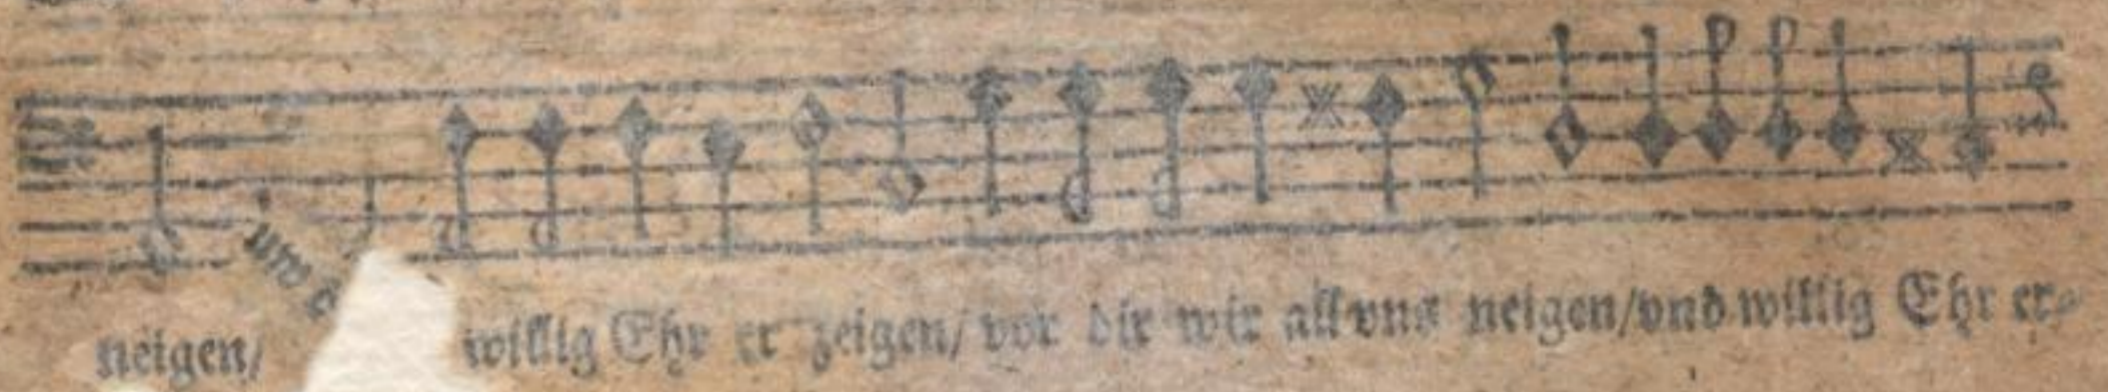 neigen/ und willig Ehr er zeigen/ vor dir wir all vns neigen/vnd willig Ehr er-